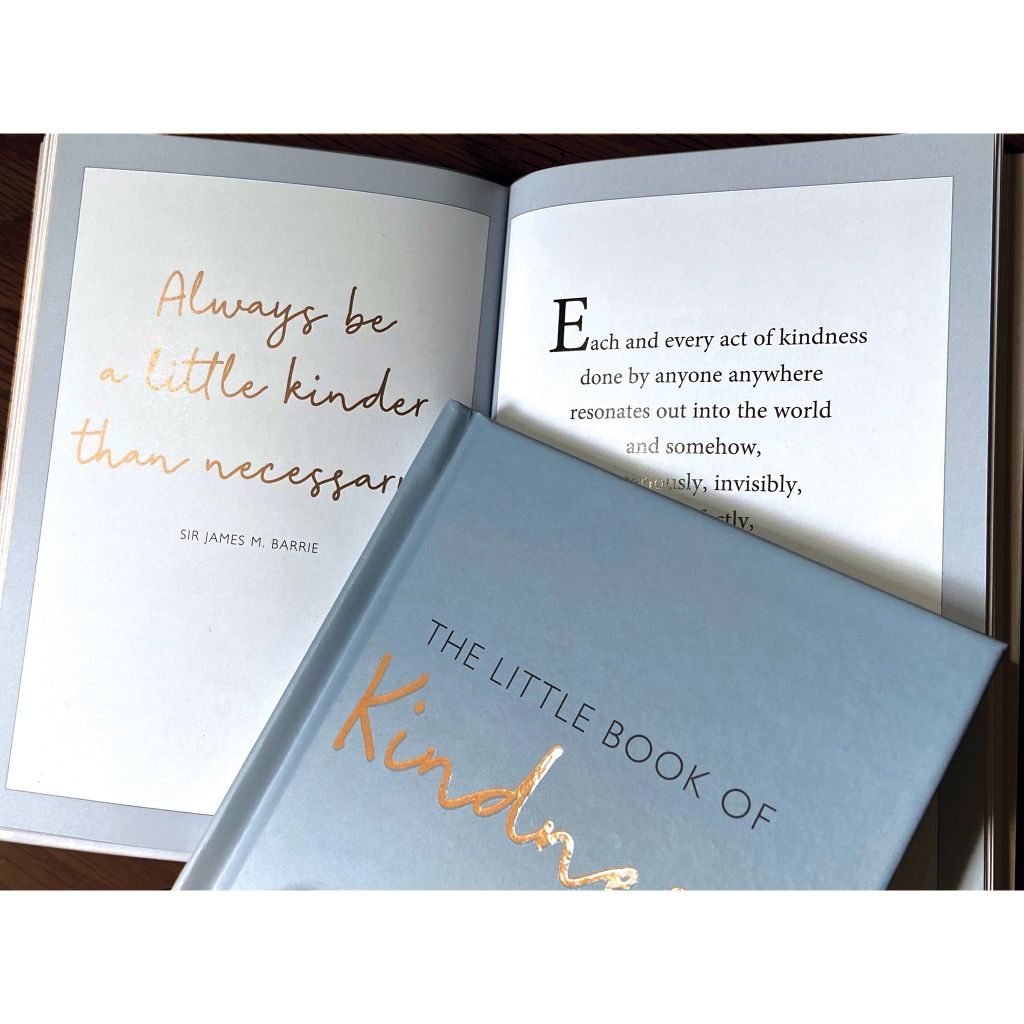 Always be
a little kinder
than necessary
SIR JAMES M. BARRIE
Each and every act of kindness
done by anyone anywhere
resonates out into the world
and somehow,
invisibly,
THE LITTLE BOOK OF